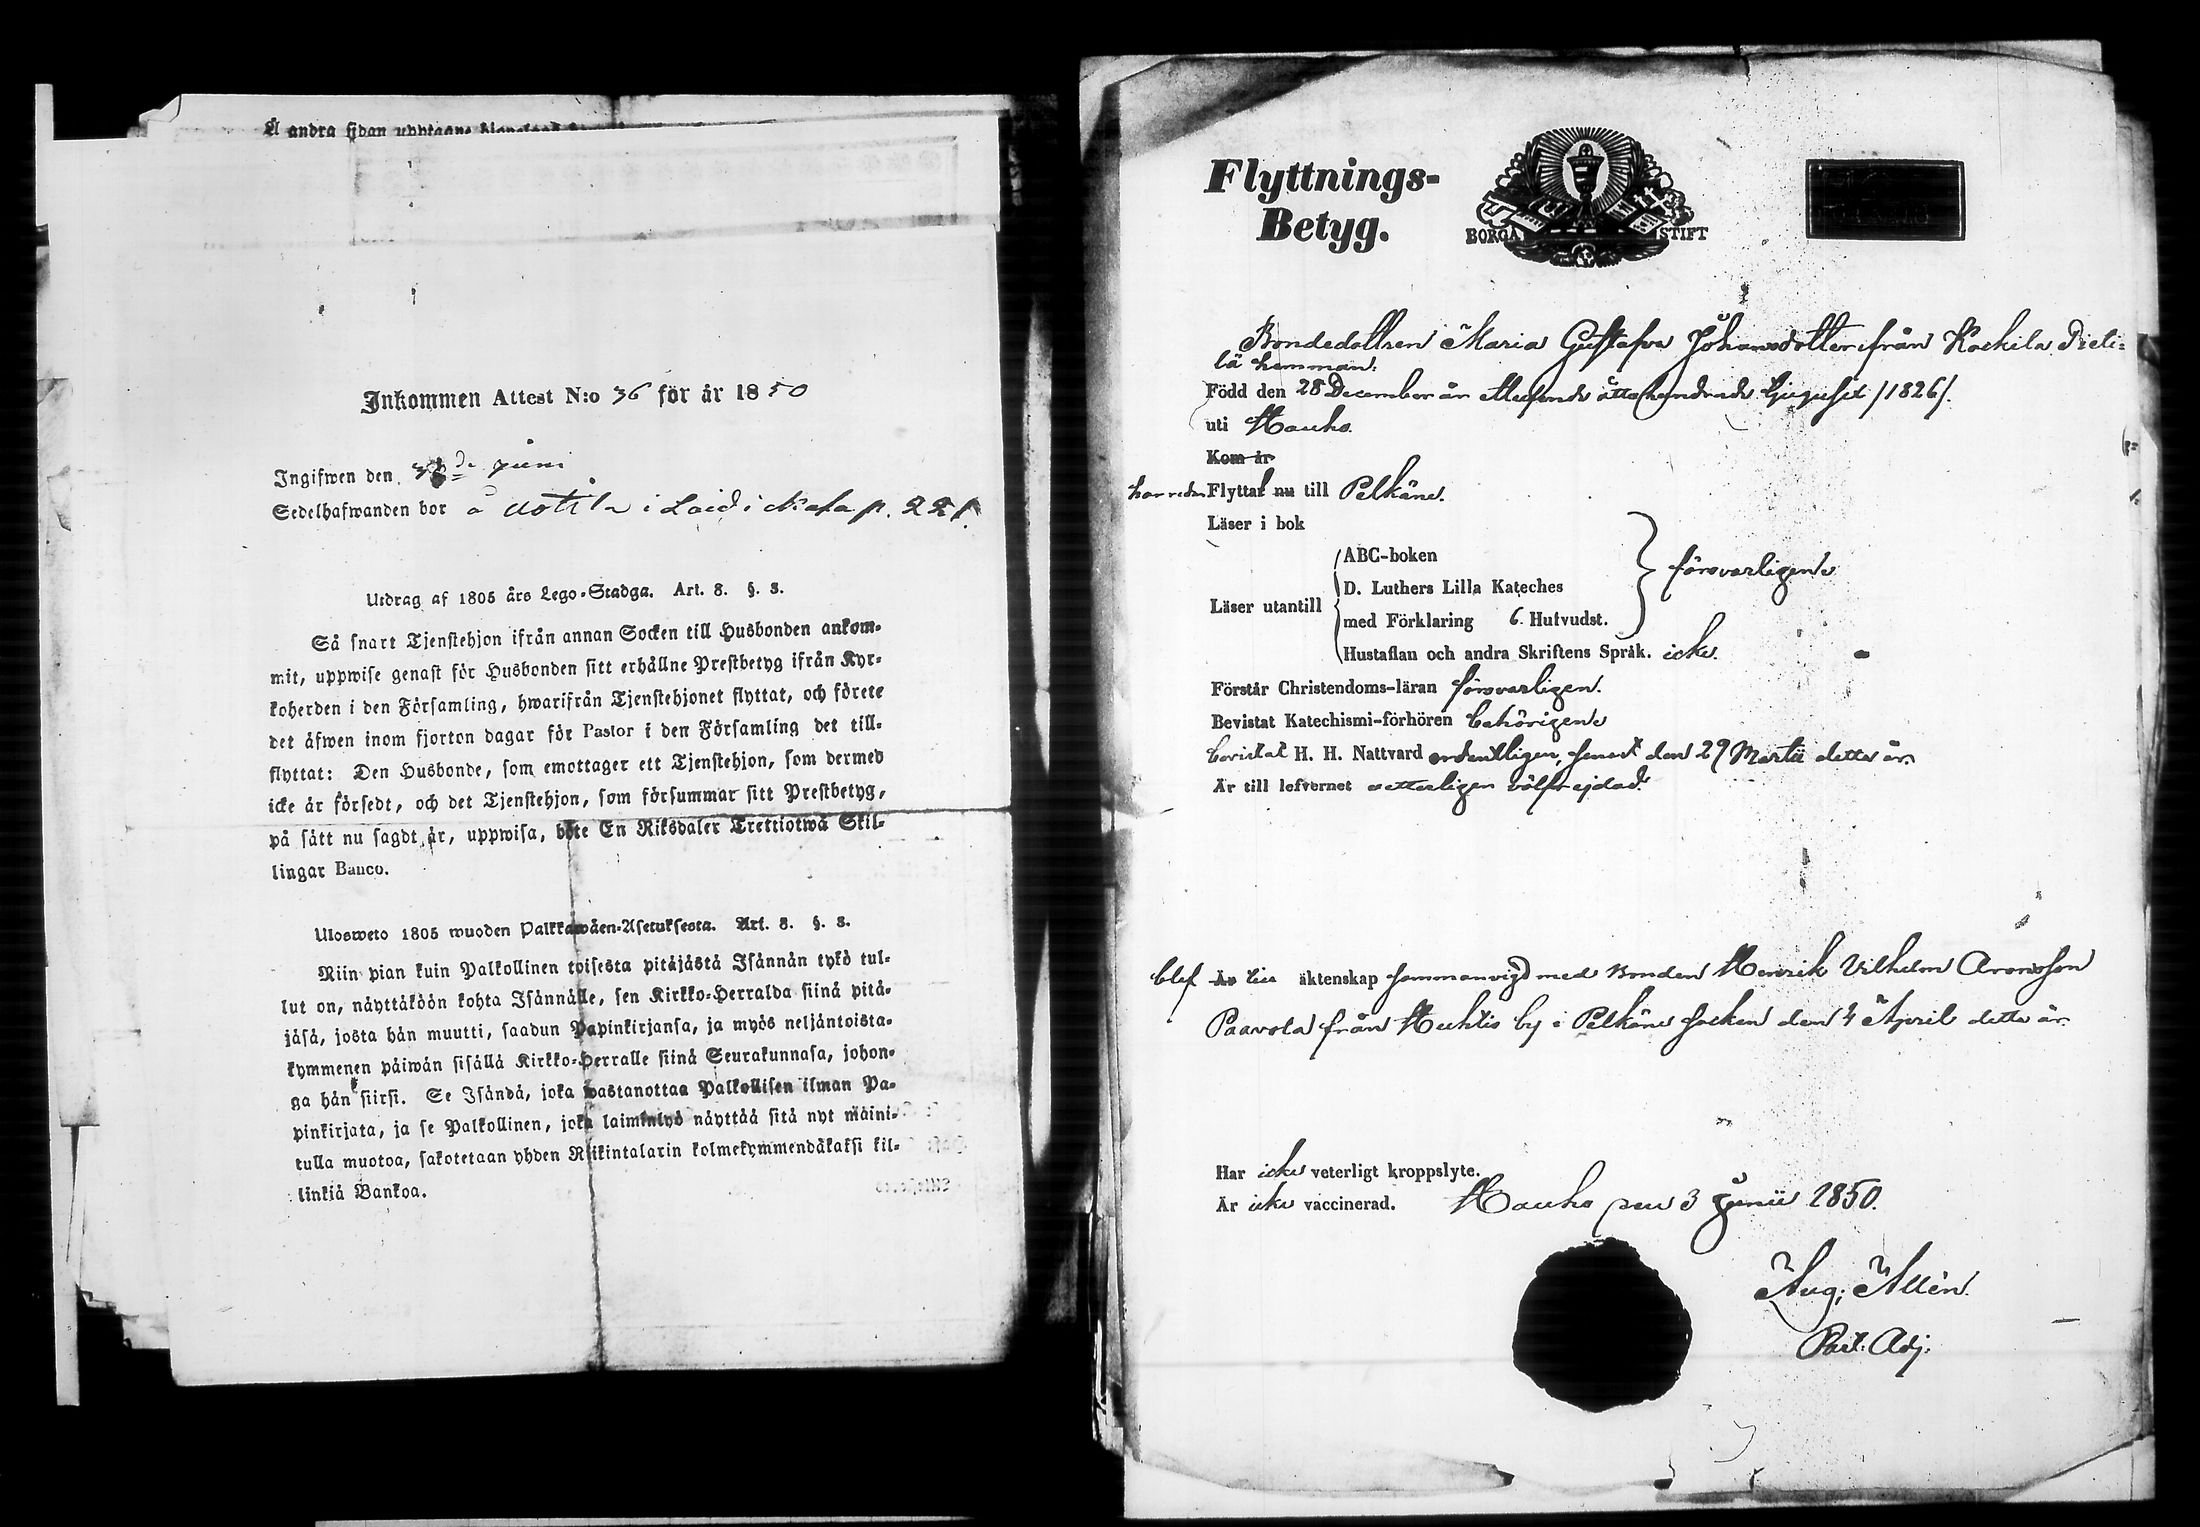 Å andra sidan upptagne
Inkommen Attest N:o 36 för år 1850
Ingifwen den juni
Sedelhafwanden bor å i p. 221.
Utdrag af 1805 års Lego-Stadga. Art. 8. §. 3.
Så snart Tjenstehjon ifrån annan Socken till Husbonden ankom-
mit, uppwise genast för Husbonden sitt erhållne Prestbetyg ifrån Kyr-
koherden i den Församling, hwarifrån Tjenstehjonet flyttat, och förete
det åfwen inom fjorton dagar för Pastor i den Församling det till-
flyttat: Den Husbonde, som emottager ett Tjenstehjon, som dermed
icke är försedt, och det Tjenstehjon, som försummar sitt Prestbetyg,
på sätt nu sagdt är, uppwisa, böte En Riksdaler Trettiotwå Skil-
lingar Banco.
Ulosweto 1805 wuoden Palkkawäen-Asetuksesta. Art. 8. §. 3.
Niin pian kuin Palkollinen toisesta pitäjästä Isännän tykö tul-
lut on, näyttäköön kohta Isännälle, sen Kirkko-Herralda siinä pitä-
jäsä, josta hän muutti, saadun Papinkirjansa, ja myös neljäntoista-
kymmenen päiwän sisällä Kirkko-Herralle siinä Seurakunnasa, johon-
ga hän siirsi. Se Isändä, joka wastanottaa Palkollisen ilman Pa-
pinkirjata, ja se Palkollinen, joka laiminlyö näyttää sitä nyt maini-
tulla muotoa, sakotetaan yhden Riikintalarin kolmekymmendäkaksi kil-
linkiä Bankoa.
Flyttnings-
Betyg.
BORGÅ STIFT
Bondedottren Maria Gustafva Johansdotter ifrån Kockila Pieti-
lä hemman.
Född den 28 December år ettusende åtta hundrade tjugusex /1826/.
uti Hauho.
Kom år
har redan Flyttat nu till Pelkäne.
Läser i bok
ABC-boken
D. Luthers Lilla Kateches
Läser utantill
med Förklaring 6. Hufvudst.
försvarligen
Hustaflan och andra Skriftens Språk. icke.
Förstår Christendoms-läran försvarligen.
Bevistat Katechismi-förhören behörigen
bevistat H. H. Nattvard ordentligen, senast den 29 Martii detta år.
Är till lefvernet vetterligen välfrejdad.
blef Är till äktenskap sammanvigd med Bonden Henrik Vilhelm Aronsson
Paavola från Huhtis by i Pelkäne socken den 4 April detta år.
Har icke veterligt kroppslyte.
Är icke vaccinerad. Hauho den 3 Junii 1850.
Aug. Allén.
Past. Adj.